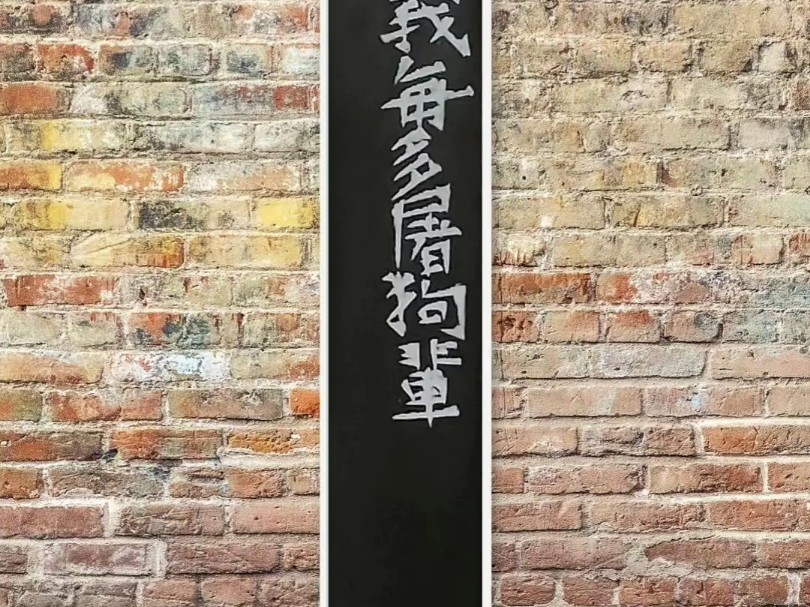 義每多屠狗輩